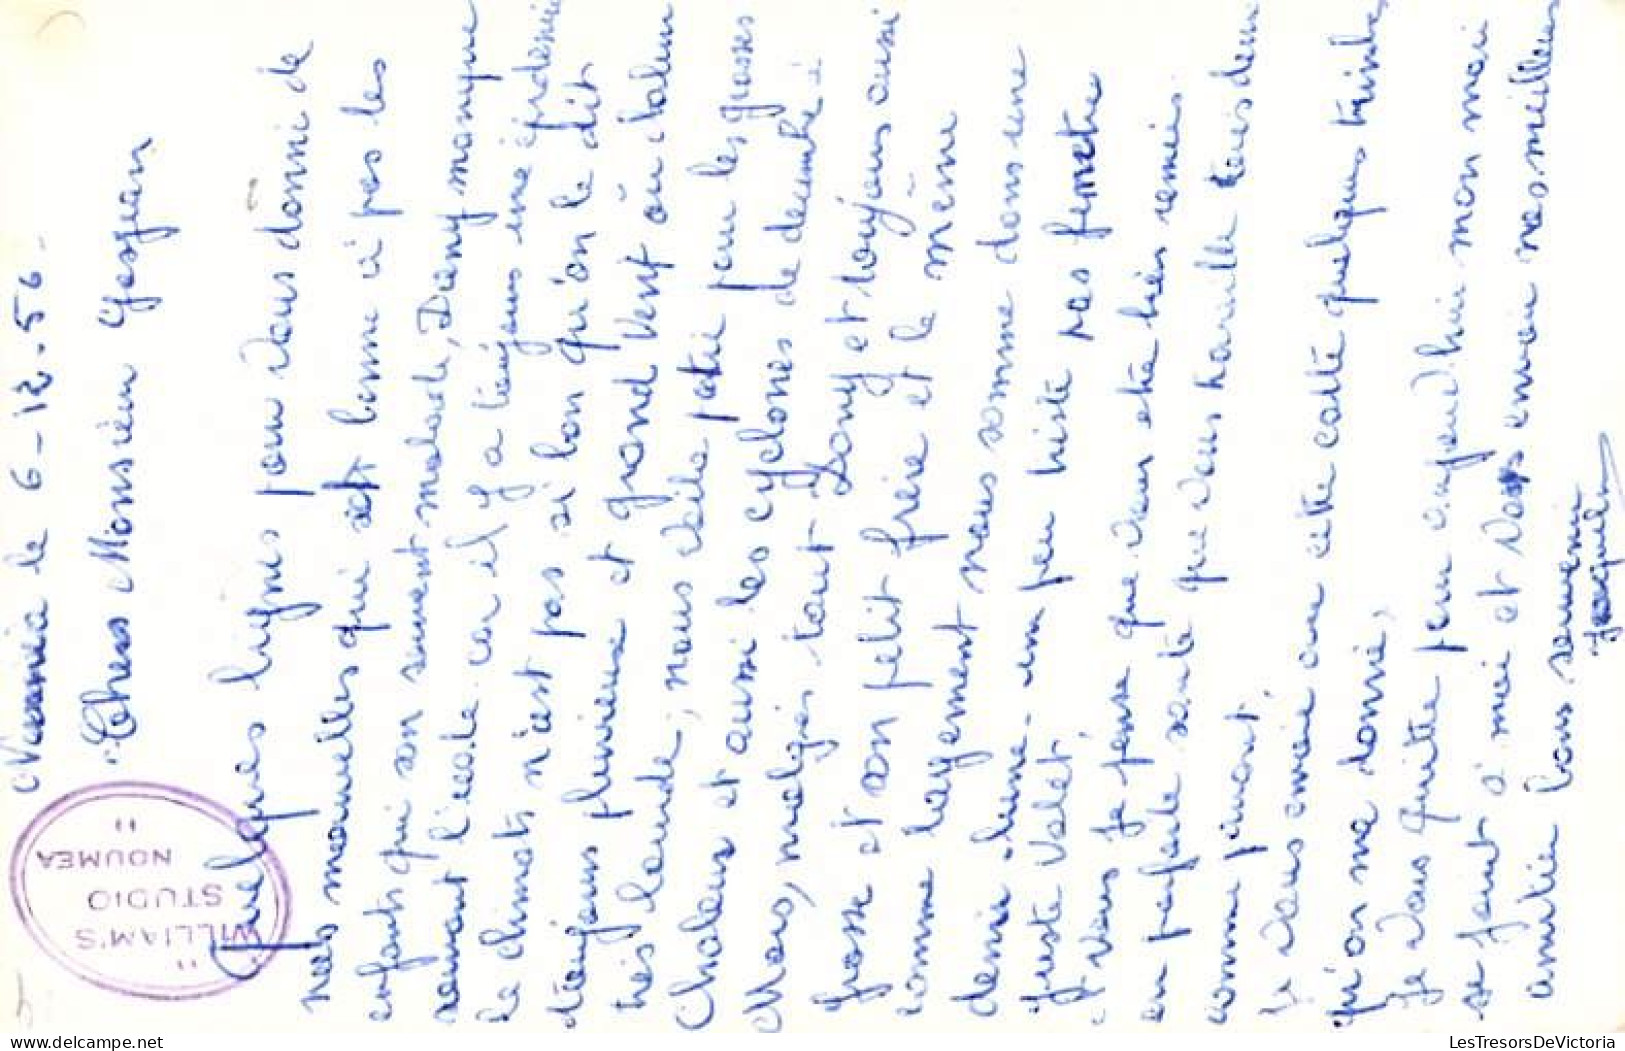 Nouméa le 6-12-56-
Chers Monsieur
Quelques lignes pour vous donné de
nos nouvelles qui est bonne à pas les
enfants qui son souvent malade, Dany manque
souvent l'ecole car il y a toujours une épidémie
le climats n'est pas si bon qu'on le dit
toujours pluvieux et grand vent ou chaleur
très lourde, nous voila partie pour les grosses
Chaleur et aussi les cyclones de decembre à
Mars, malgrés tout Dany et toujours aussi
grosse et son petit frère et le même
comme logement nous somme dans une
demi-lune un peu triste pas fenetre
juste volet,
et vous je pense que vous etre bien remis
en parfaite santé que vous travaille tous deux
comme
Je vous envoie une cette carte quelques timbre
qu'on ma donné,
Je vous quitte pour aujourd'hui mon mari
se joint à moi et vous envoie nos meilleurs
amitié bons souvenir
WILLIAM'S
STUDIO
NOUMEA
www.delcampe.net
LesTresorsDeVictoria